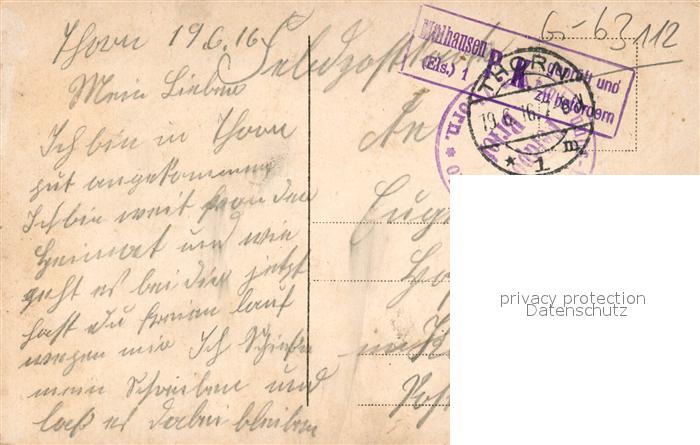 Thorn 19.6.16
Feldpostkarte
G-63112
Mülhausen
(Els.) 1
P.K.
geprüft und
zu befördern
THORN
19.6.16.
* 1 m
Mein Lieber
An
Ich bin in Thorn
gut angekommen
Ich bin weit von der
Heimat und wie
geht es bei dir jetzt
hast du freien lauf
wegen mir Ich Schließe
mein Schreiben und
laß es dabei bleiben
privacy protection
Datenschutz